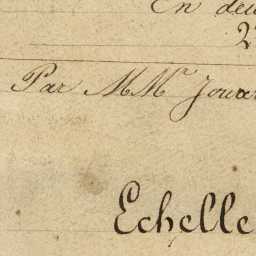 En deu
2
Par M.Mr Jouve
Echelle